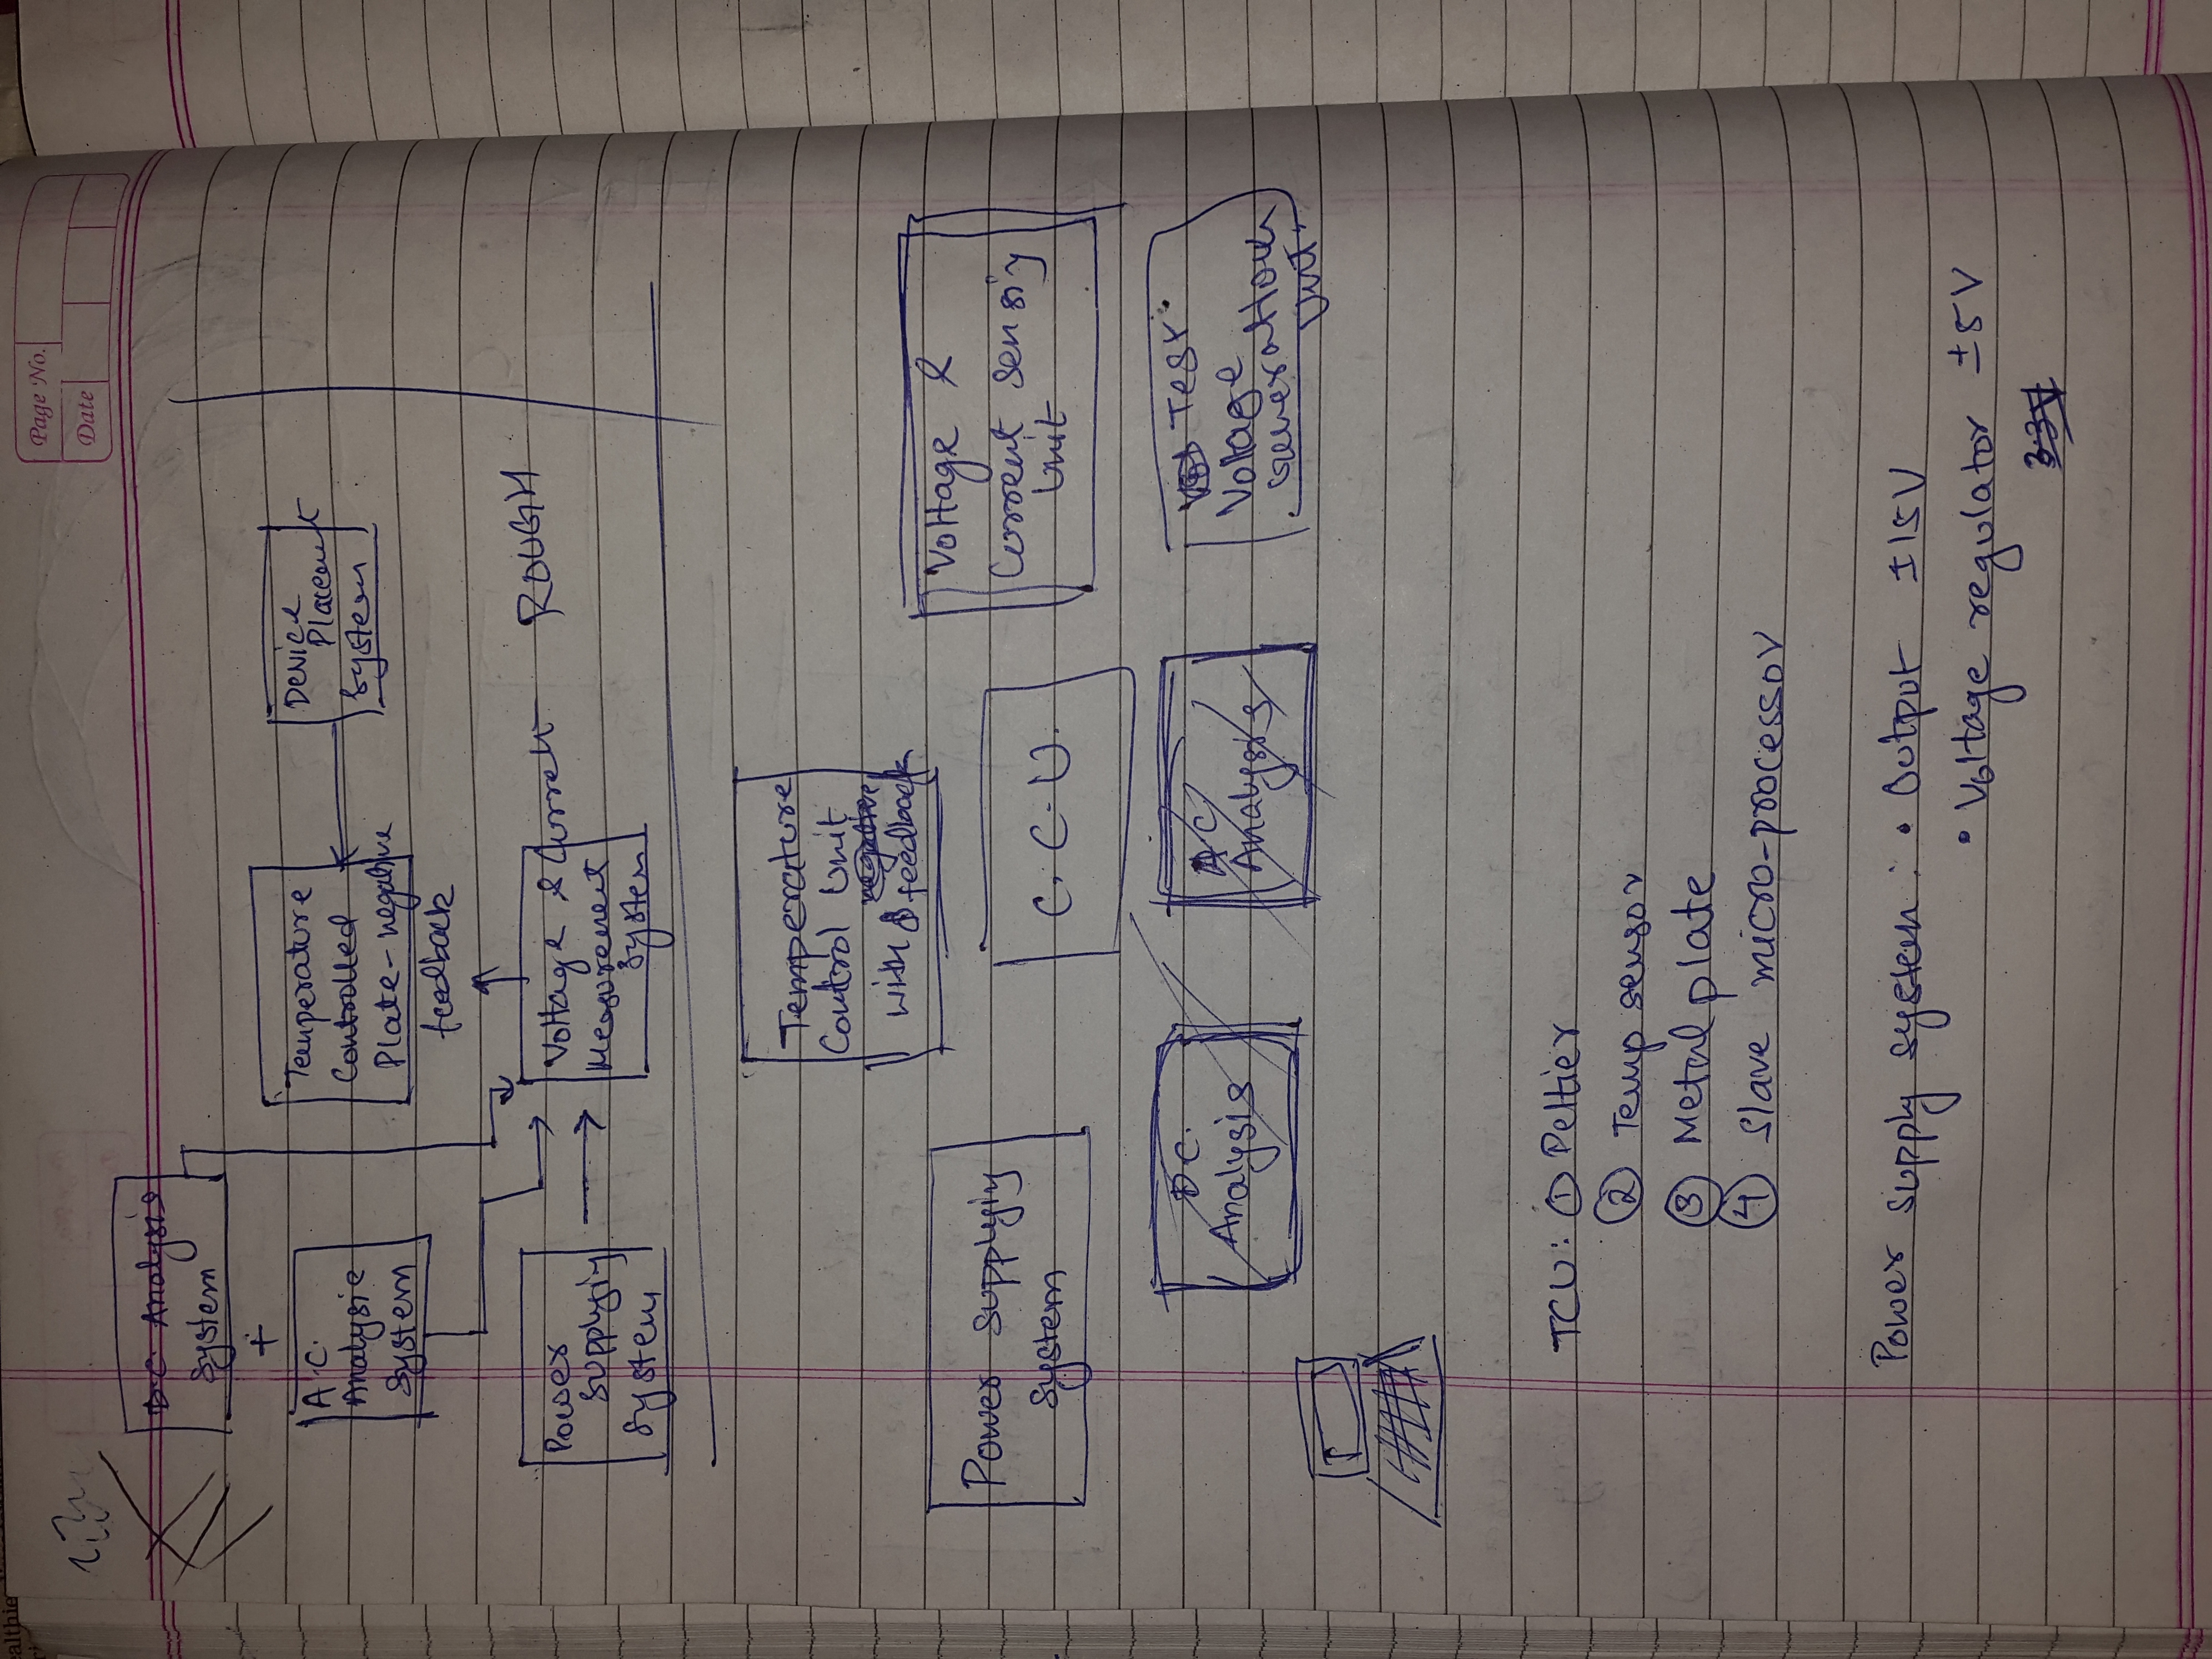 ealthie
Page No.
Date
D.C. Analysis
System
+
A.C.
Analysis
System
Temperature
Controlled
Plate - negative
feedback
Device
Placement
System
Power
Supplying
System
Voltage & Current
Measurement
System
ROUGH
Temperature
Control Unit
negative
with feedback
Power Supplying
System
C. C. U.
Voltage &
Current Sensing
Unit
D.C.
Analysis
AC
Analysis
Test
Voltage
Generation
Unit
TCU: ① Peltier
② Temp sensor
③ Metal plate
④ Slave micro-processor
Power supply system : • Output ±15V
• Voltage regulator ±5V
3.3V